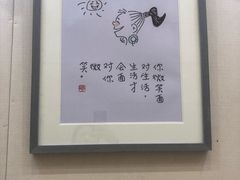 你微笑面
对生活，
生活才
会面
对你
微
笑。